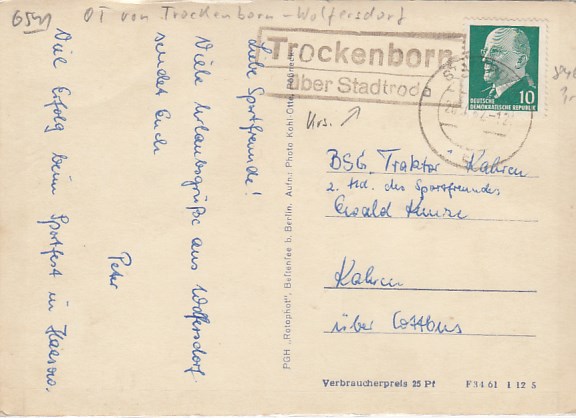 6541 OT von Trockenborn-Wolfersdorf
Trockenborn
über Stadtroda
DEUTSCHE
DEMOKRATISCHE REPUBLIK
10
Krs.
Liebe Sportfreunde!
Viele Urlaubsgrüße aus Wolfersdorf
sendet Euch
Peter
Viel Erfolg beim Sportfest in
PGH „Rotophot", Bestensee b. Berlin, Aufn.: Photo Kohl-Otto,
BSG „Traktor" Kahren
z. Hd. des Sportfreundes
Ewald
Kahren
über Cottbus
Verbraucherpreis 25 Pf
F 34 61 I 12 S